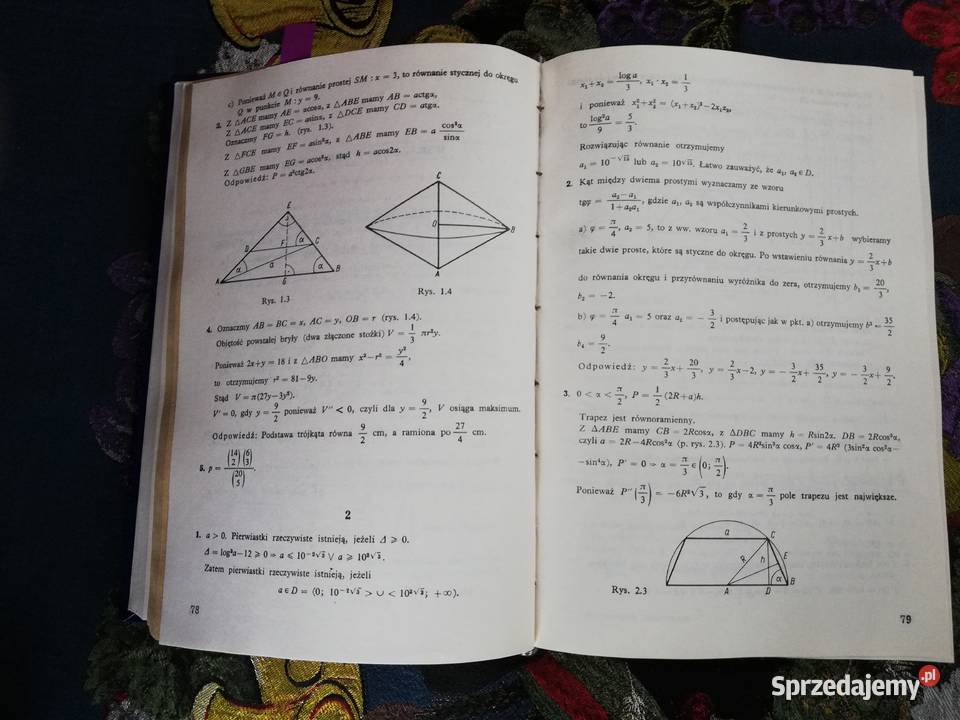 c) Ponieważ M ∈ Q i równanie prostej SM : x = 3, to równanie stycznej do okręgu
Q w punkcie M : y = 9.
Z △ACE mamy AE = acosα, z △ABE mamy AB = actgα.
Z △ACE mamy EC = asinα, z △DCE mamy CD = atgα.
Oznaczmy FG = h. (rys. 1.3).
Z △FCE mamy EF = asin²α, z △ABE mamy EB = a cos²α/sinα
Z △GBE mamy EG = acos²α, stąd h = acos2α.
Odpowiedź: P = a²ctg2α.
E
F
D
C
α
α
a
α
A
G
B
Rys. 1.3
C
O
B
A
Rys. 1.4
4. Oznaczmy AB = BC = x, AC = y, OB = r (rys. 1.4).
Objętość powstałej bryły (dwa złączone stożki) V = 1/3 πr²y.
Ponieważ 2x+y = 18 i z △ABO mamy x²−r² = y²/4,
to otrzymujemy r² = 81−9y.
Stąd V = π(27y−3y²).
V' = 0, gdy y = 9/2 ponieważ V'' < 0, czyli dla y = 9/2, V osiąga maksimum.
Odpowiedź: Podstawa trójkąta równa 9/2 cm, a ramiona po 27/4 cm.
5. p = (14 2)(6 3)/(20 5).
2
1. a > 0. Pierwiastki rzeczywiste istnieją, jeżeli Δ ⩾ 0.
Δ = log²a−12 ⩾ 0 ⇒ a ⩽ 10^−2√3 ∨ a ⩾ 10^2√3.
Zatem pierwiastki rzeczywiste istnieją, jeżeli
a ∈ D = (0; 10^−2√3 > ∪ < 10^2√3; +∞).
78
x₁+x₂ = log a/3, x₁ · x₂ = 1/3
i ponieważ x₁²+x₂² = (x₁+x₂)²−2x₁x₂,
to log²a/9 = 5/3.
Rozwiązując równanie otrzymujemy
a₁ = 10^−√15 lub a₂ = 10^√15. Łatwo zauważyć, że a₁, a₂ ∈ D.
2. Kąt między dwiema prostymi wyznaczamy ze wzoru
tgφ = a₂−a₁/1+a₂a₁, gdzie a₁, a₂ są współczynnikami kierunkowymi prostych.
a) φ = π/4, a₂ = 5, to z ww. wzoru a₁ = 2/3 i z prostych y = 2/3x+b wybieramy
takie dwie proste, które są styczne do okręgu. Po wstawieniu równania y = 2/3x+b
do równania okręgu i przyrównaniu wyróżnika do zera, otrzymujemy b₁ = 20/3,
b₂ = −2.
b) φ = π/4 a₁ = 5 oraz a₂ = −3/2 i postępując jak w pkt. a) otrzymujemy b³ = 35/2
b₄ = 9/2.
Odpowiedź: y = 2/3x+20/3, y = 2/3x−2, y = −3/2x+35/2, y = −3/2x+9/2.
3. 0 < α < π/2, P = 1/2(2R+a)h.
Trapez jest równoramienny.
Z △ABE mamy CB = 2Rcosα, z △DBC mamy h = Rsin2α. DB = 2Rcos²α,
czyli a = 2R−4Rcos²α (p. rys. 2.3). P = 4R²sin³α cosα, P' = 4R² (3sin²α cos²α−
−sin⁴α), P' = 0 ⇒ α = π/3 ∈ (0; π/2).
Ponieważ P''(π/3) = −6R²√3, to gdy α = π/3 pole trapezu jest największe.
a
C
R
h
E
α
A
D
B
Rys. 2.3
79
Sprzedajemy.pl